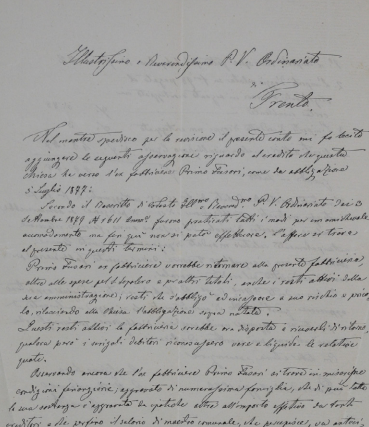 Illustrissimo e Reverendissimo P. V. Ordinariato
di
Trento.
Nel mentre spedisco per la revisione il presente conto mi fo lecito
aggiungere le seguenti osservazione riguardo al credito di questa
chiesa da verso l'ex fabbriciere Primo Fusari, come da obbligazione
5 Luglio 1877:
Secondo il Decreto di codesto Ill.mo e Revmo P. V. Ordinariato dei 3
Settembre 1879 N 1611 furono praticati tutti i modi per un amichevole
accomodamento ma fin qui non si poté effettuare. L'affare si trova
al presente in questi termini:
Primo Fusari ex fabbriciere vorrebbe ritornare alla presente fabbriceria
oltre alle spese pel e per altri titoli, anche i resti attivi della
sua amministrazione, resti che s'obbligò ad incassare a suo rischio e perico-
lo, rilasciando alla Chiesa l'obbligazione sopra notata.
Questi resti attivi la fabbriceria sarebbe ora disposta a riceverli di ritorno,
qualora però i singoli debitori riconoscessero vere e liquide le relative
quote.
Osservando ancora che l'ex fabbriciere Primo Fusari si trova in miserissime
condizioni finanziarie, aggravato di numerosissima famiglia, che di più tutta
la sua sostanza è aggravata da ipoteche oltre all'importo effettivo da tanti
creditori e che perfino il salario di maestro comunale, che percepisce,